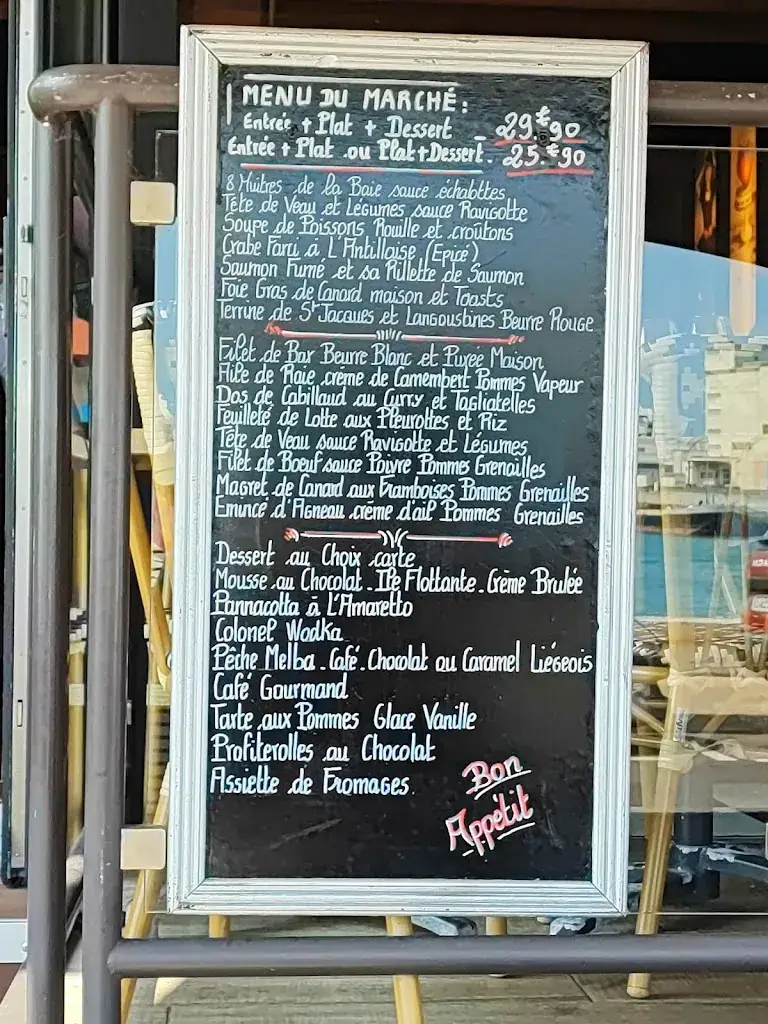 MENU DU MARCHÉ :
Entrée + Plat + Dessert _ 29.€90
Entrée + Plat ou Plat + Dessert. 25.€90
8 Huitres de la Baie sauce échalottes
Tête de Veau et Légumes sauce Ravigotte
Soupe de Poissons Rouille et croûtons
Crabe Farci à L'Antillaise (Epicé)
Saumon Fumé et sa Rillette de Saumon
Foie Gras de Canard maison et Toasts
Terrine de St Jacques et Langoustines Beurre Rouge
Filet de Bar Beurre Blanc et Purée Maison
Aile de Raie crème de Camembert Pommes Vapeur
Dos de Cabillaud au Curry et Tagliatelles
Feuilleté de Lotte aux Pleurottes et Riz
Tête de Veau sauce Ravigotte et Légumes
Filet de Boeuf sauce Poivre Pommes Grenailles
Magret de Canard aux Framboises Pommes Grenailles
Emincé d'Agneau crème d'ail Pommes Grenailles
Dessert au Choix carte
Mousse au Chocolat - Ile Flottante - Crème Brulée
Pannacotta à L'Amaretto
Colonel Wodka
Pêche Melba - Café, Chocolat ou Caramel Liégeois
Café Gourmand
Tarte aux Pommes Glace Vanille
Profiterolles au Chocolat
Assiette de Fromages
Bon
Appétit